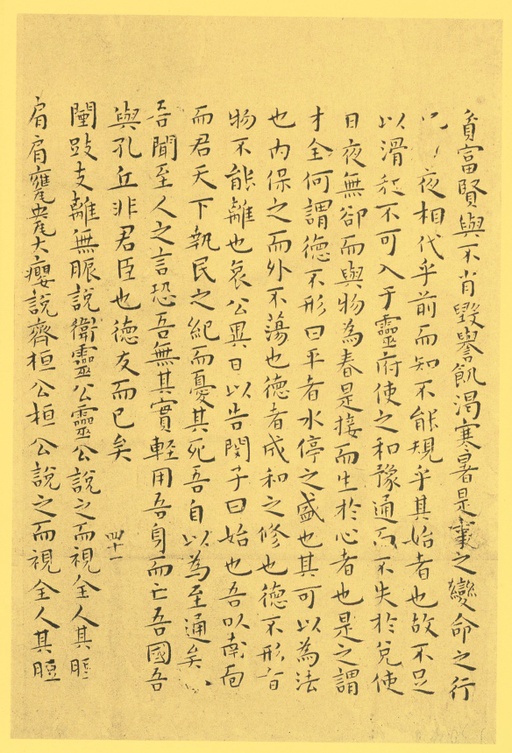 貧富賢與不肖毀譽飢渴寒暑是事之變命之行
也日夜相代乎前而知不能規乎其始者也故不足
以滑和不可入于靈府使之和豫通而不失於兌使
日夜無卻而與物為春是接而生於心者也是之謂
才全何謂德不形曰平者水停之盛也其可以為法
也內保之而外不蕩也德者成和之修也德不形者
物不能離也哀公異日以告閔子曰始也吾以南面
而君天下執民之紀而憂其死吾自以為至通矣今
吾聞至人之言恐吾無其實輕用吾身而亡吾國吾
與孔丘非君臣也德友而已矣 四十一
闉跂支離無脤說衛靈公靈公說之而視全人其脰
肩肩甕㼜大癭說齊桓公桓公說之而視全人其脰